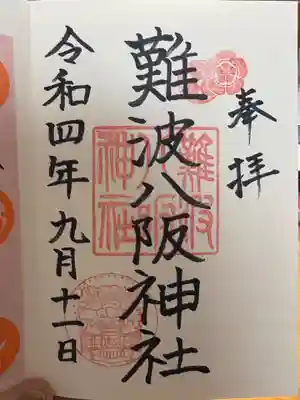 奉拝
難波八阪神社
令和四年九月十一日
難波八阪神社